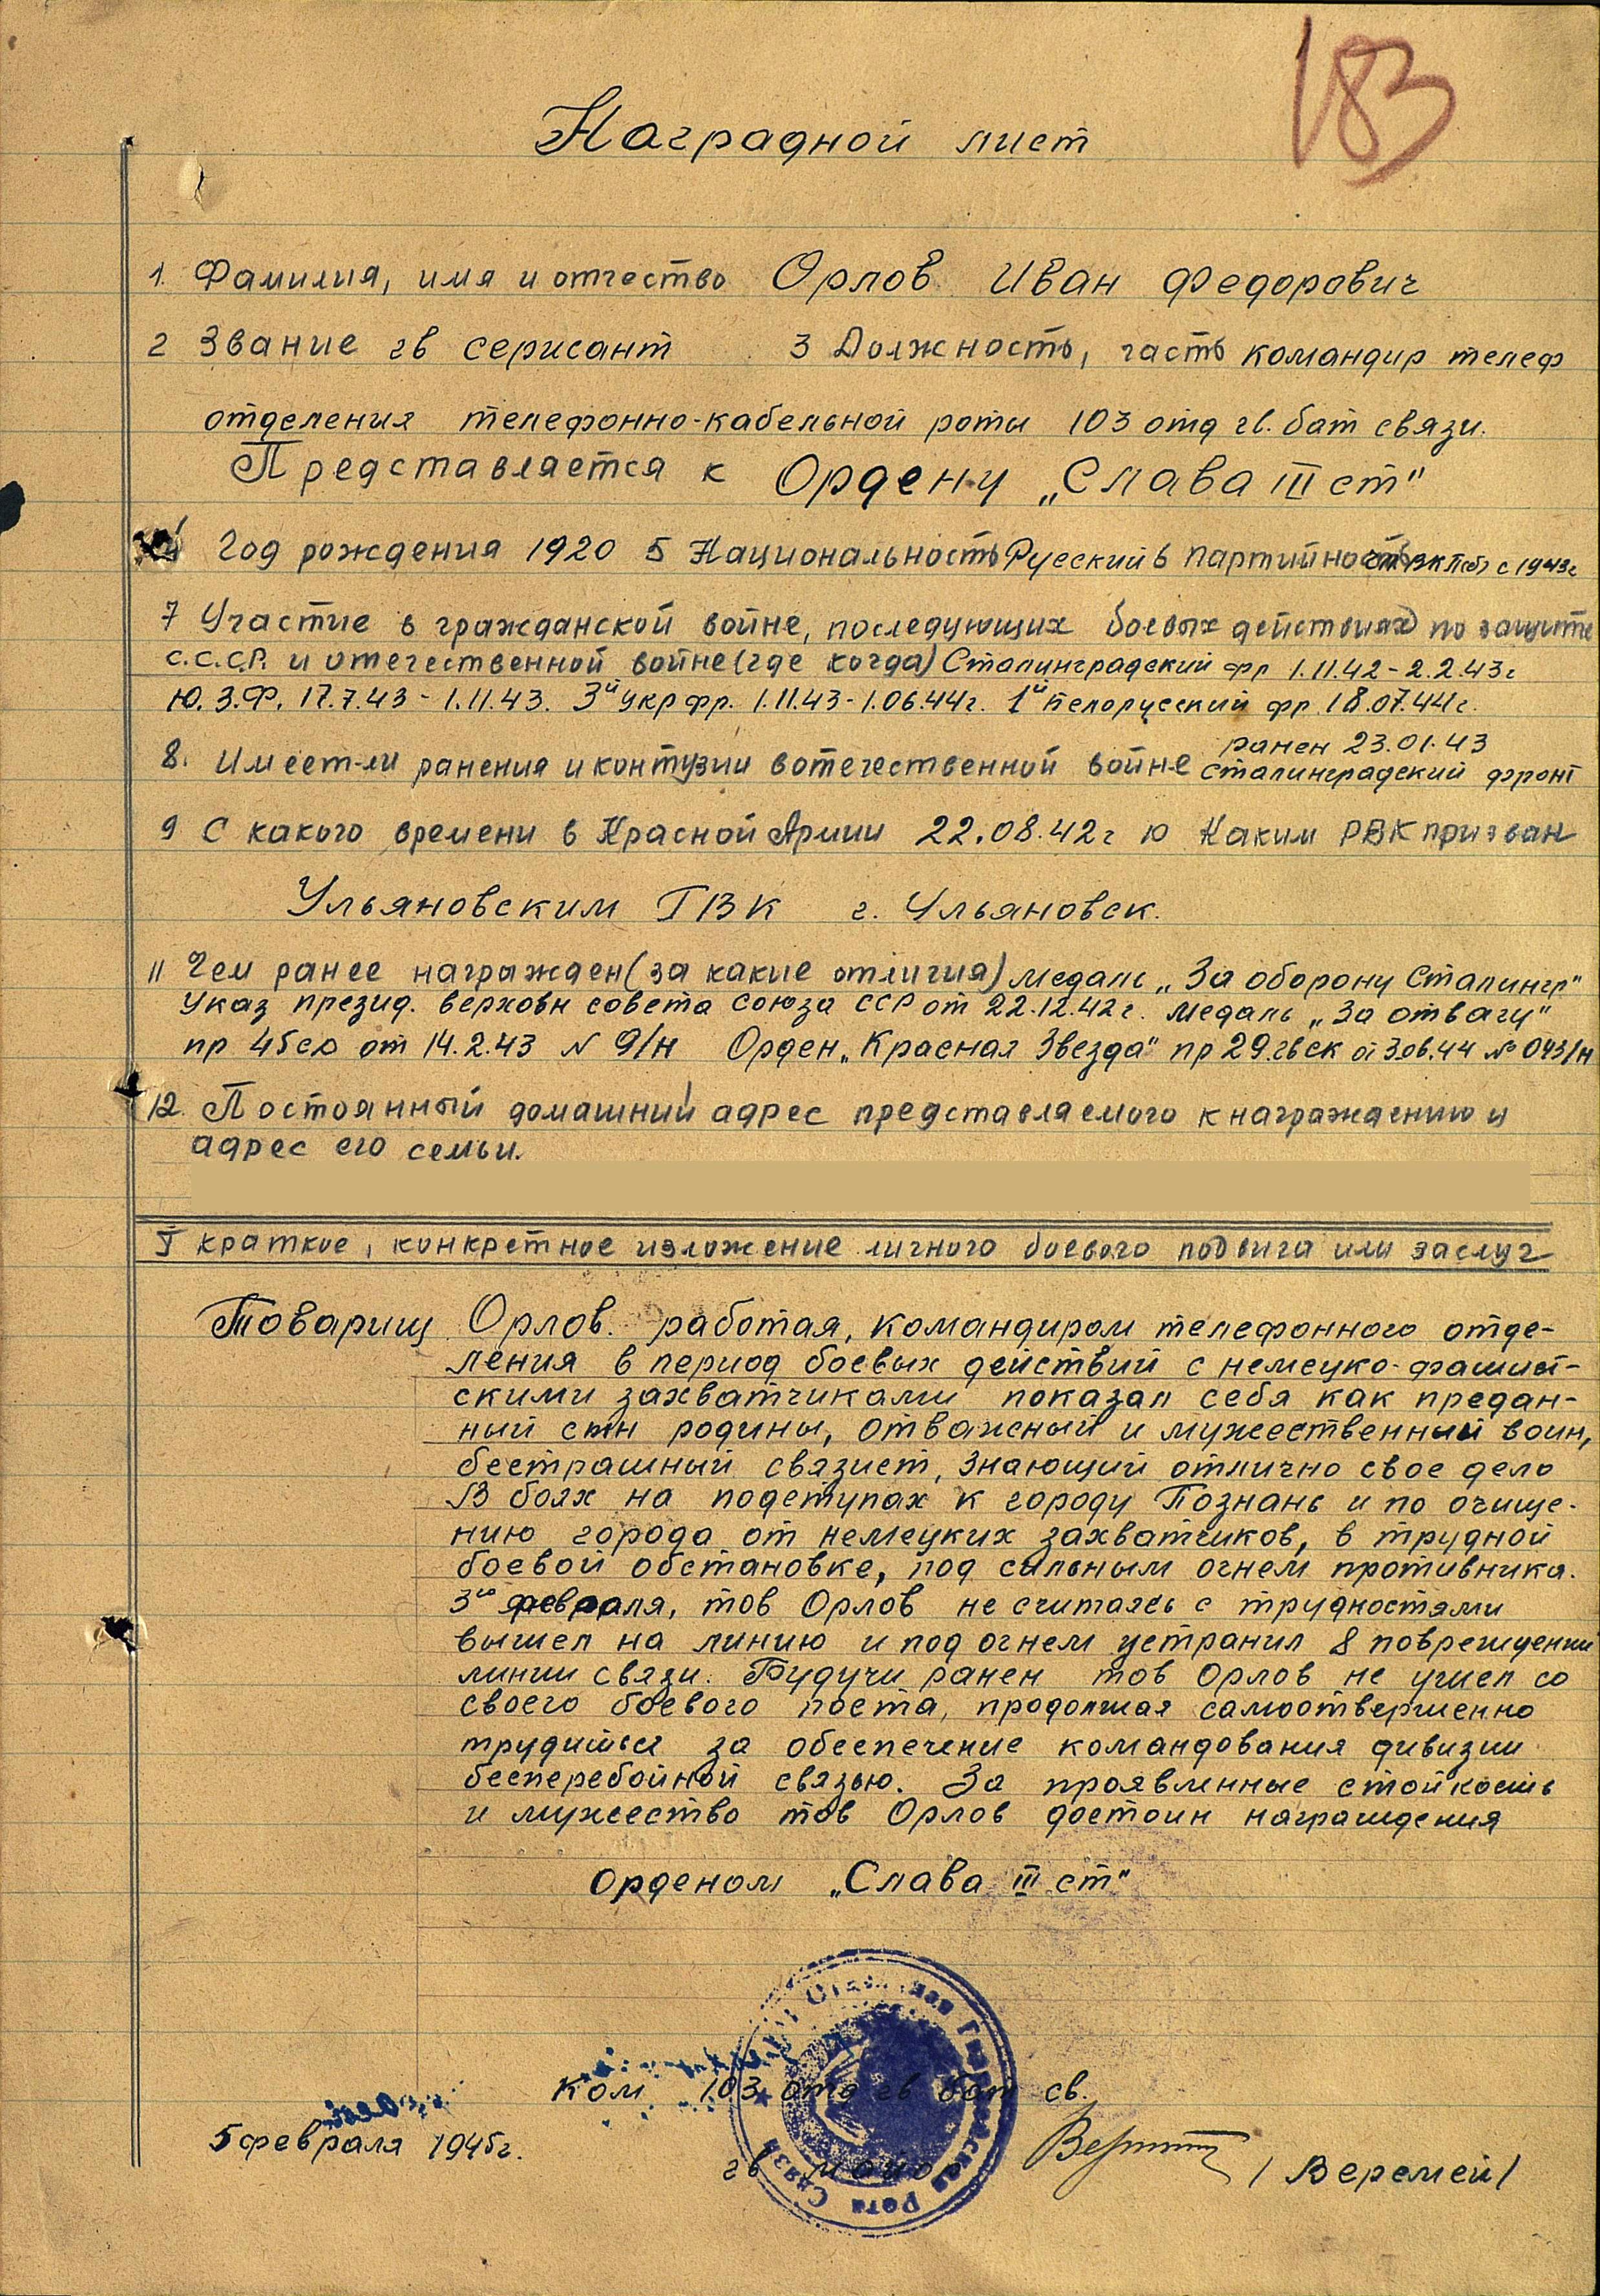 183
Наградной лист
1. Фамилия, имя и отчество Орлов Иван Федорович
2 Звание гв сержант 3 Должность, часть командир телеф
отделения телефонно-кабельной роты 103 отд гв. бат связи.
Представляется к Ордену „Слава III ст"
4 Год рождения 1920 5 Национальность Русский 6 Партийность ВКП(б) с 1943г
7 Участие в гражданской войне, последующих боевых действиях по защите
С.С.С.Р. и отечественной войне (где когда) Сталинградский фр 1.11.42-2.2.43г
Ю.З.Ф. 17.7.43-1.11.43. 3й укр фр. 1.11.43-1.06.44г. 1й Белорусский фр. 18.07.44г.
8. Имеет-ли ранения и контузии в отечественной войне ранен 23.01.43
Сталинградский фронт
9 С какого времени в Красной Армии 22.08.42г 10 Каким РВК призван
Ульяновским ГВК г. Ульяновск.
11 Чем ранее награжден (за какие отличия) медаль „За оборону Сталингр"
Указ презид. верховн совета союза ССР от 22.12.42г. медаль „За отвагу"
пр 45сд от 14.2.43 № 9/н Орден „Красная Звезда" пр 29 гв ск от 3.06.44 № 043/н
12. Постоянный домашний адрес представляемого к награждению и
адрес его семьи.
I краткое, конкретное изложение личного боевого подвига или заслуг
Товарищ Орлов. работая, командиром телефонного отде-
ления в период боевых действий с немецко-фашист-
скими захватчиками показал себя как предан-
ный сын родины, отважный и мужественный воин,
бестрашный связист, знающий отлично свое дело
В боях на подступах к городу Познань и по очище-
нию города от немецких захватчиков, в трудной
боевой обстановке, под сильным огнем противника.
3го февраля, тов Орлов не считаясь с трудностями
вышел на линию и под огнем устранил 8 повреждений
линии связи. Будучи ранен тов Орлов не ушел со
своего боевого поста, продолжая самоотверженно
трудиться за обеспечение командования дивизии
бесперебойной связью. За проявленные стойкость
и мужество тов Орлов достоин награждения
орденом „Слава III ст"
Ком 103 отд гв бат св.
5 февраля 1945г.
гв майор / Веремей /
Гвардейская Рота Связи